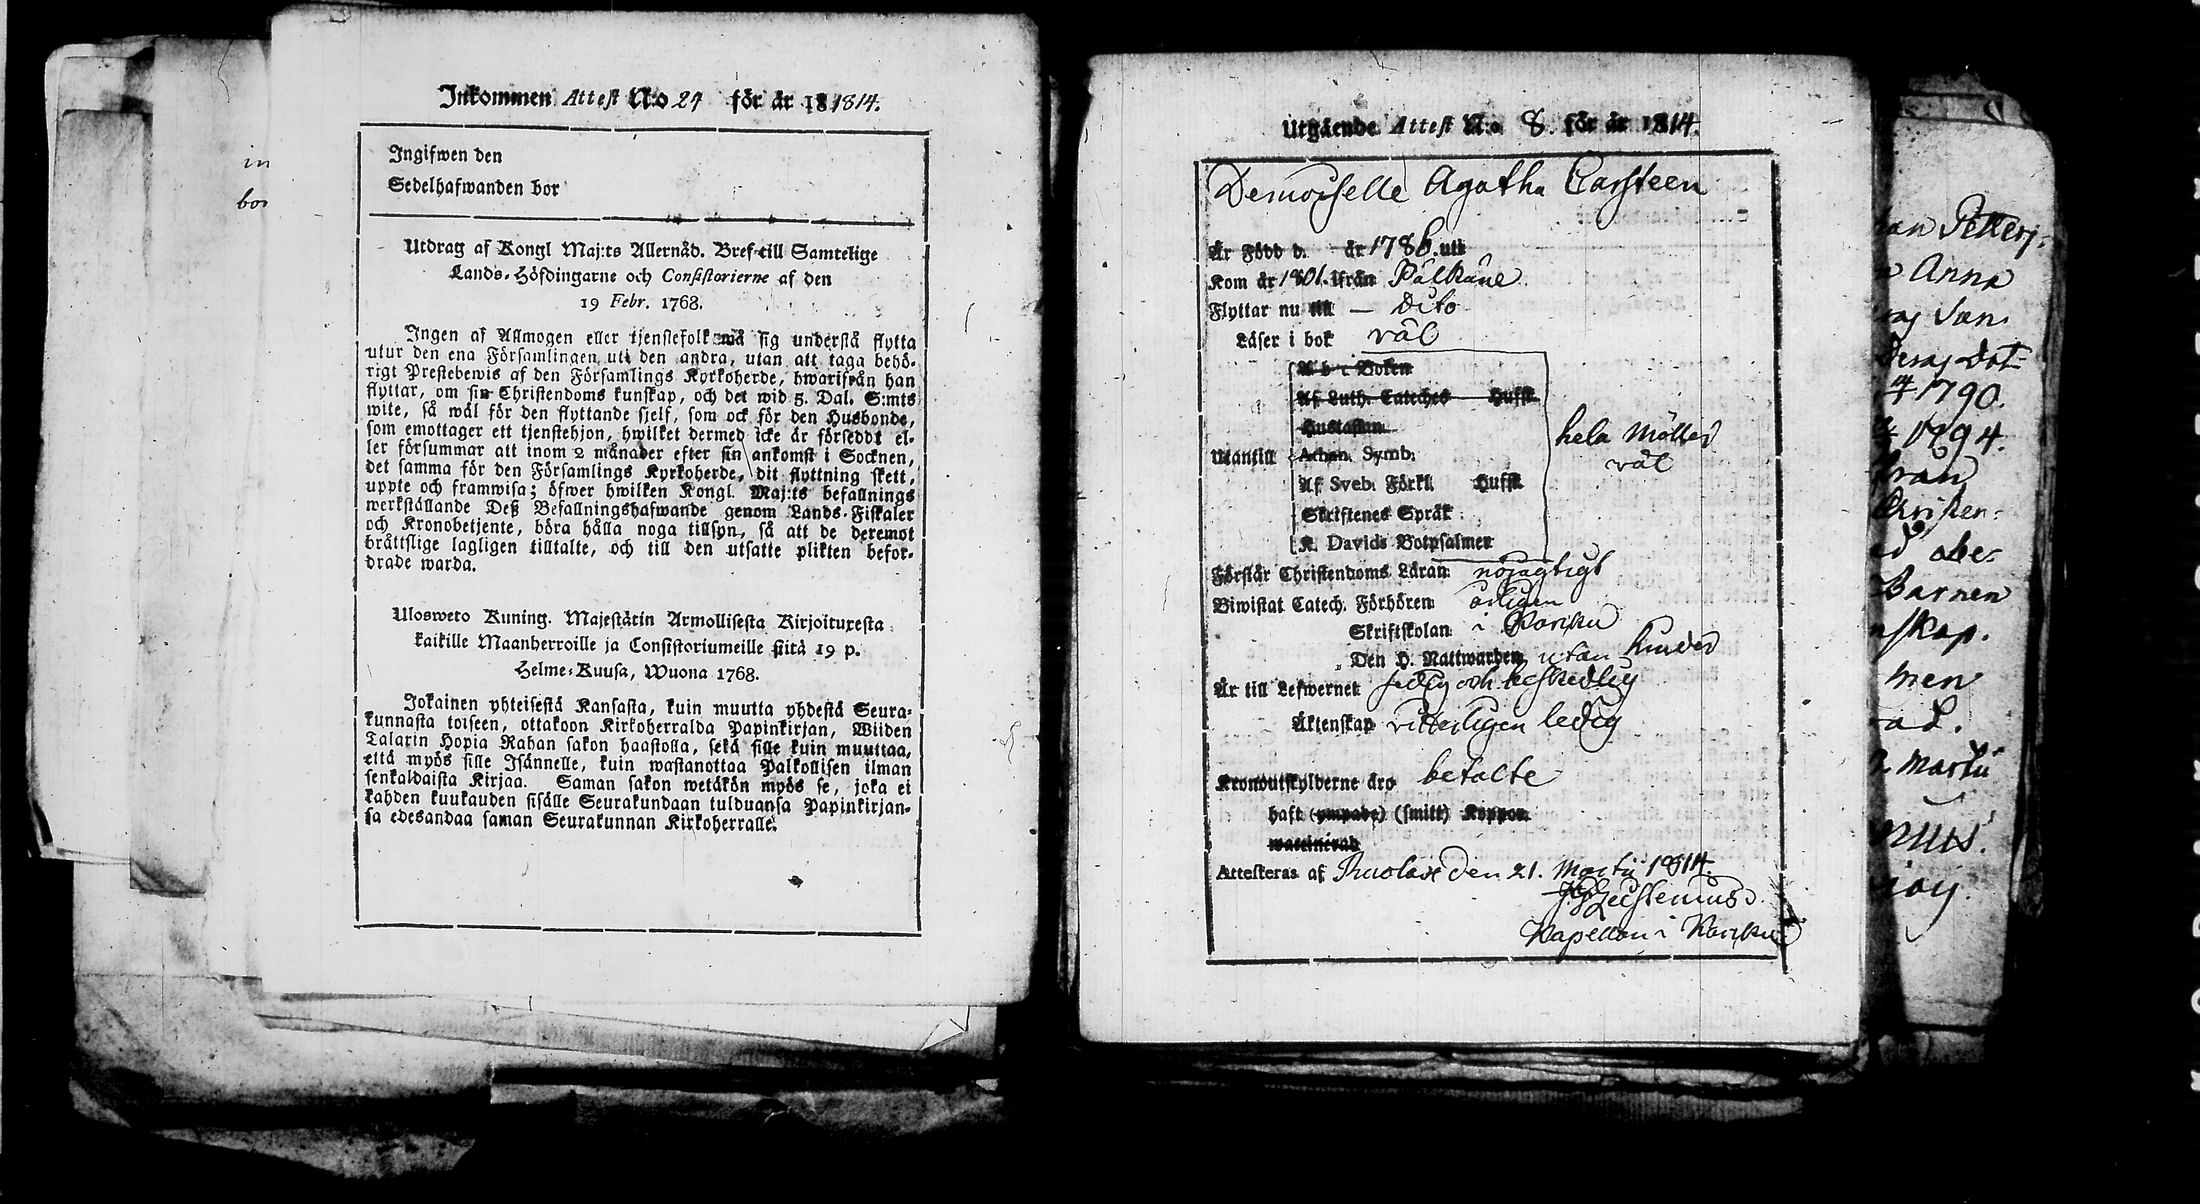 in
bor
Inkommen Attest N:o 24 för år 181814.
Ingifwen den
Sedelhafwanden bor
Utdrag af Kongl Maj:ts Allernåd. Bref till Samtelige
Lands-Höfdingarne och Consistorierne af den
19 Febr. 1768.
Ingen af Allmogen eller tjenstefolk må sig understå flytta
utur den ena Församlingen uti den andra, utan att taga behö-
rigt Prestebewis af den Församlings Kyrkoherde, hwarifrån han
flyttar, om sin Christendoms kunskap, och det wid 5. Dal. S:mts
wite, så wäl för den flyttande sjelf, som ock för den Husbonde,
som emottager ett tjenstehjon, hwilket dermed icke är förseddt el-
ler försummar att inom 2 månader efter sin ankomst i Socknen,
det samma för den Församlings Kyrkoherde, dit flyttning skett,
uppte och framwisa; öfwer hwilken Kongl. Maj:ts befallnings
werkställande Deß Befallningshafwande genom Lands-Fiskaler
och Kronobetjente, böra hålla noga tillsyn, så att de deremot
bråttslige lagligen tilltalte, och till den utsatte plikten befor-
drade warda.
Ulosweto Kuning. Majestätin Armollisesta Kirjoituxesta
kaikille Maanherroille ja Consistoriumeille siitä 19 p.
Helme-Kuusa, Wuona 1768.
Jokainen yhteisestä Kansasta, kuin muutta yhdestä Seura-
kunnasta toiseen, ottakoon Kirkoherralda Papinkirjan, Wiiden
Talarin Hopia Rahan sakon haastolla, sekä sille kuin muuttaa,
että myös sille Isännelle, kuin wastanottaa Palkollisen ilman
senkaldaista Kirjaa. Saman sakon wetäkön myös se, joka ei
kahden kuukauden sisälle Seurakundaan tulduansa Papinkirjan-
sa edesandaa saman Seurakunnan Kirkoherralle.
Utgående Attest N:o 8. för år 1814.
Demoiselle Agatha Carsteen
Är Född d. år 1786. uti
Kom år 1801. ifrån Pälkäne
Flyttar nu till — Dito
Läser i bok väl
A b c Boken
Af Luth. Cateches Hufst.
Hustaflan
Utantill Athan. Symb.
Af Sveb. Förkl. Hufst.
Skriftenes Språk
K. Davids Botpsalmer
hela Möllers
väl
Förstår Christendoms Läran nöjagtigt
Biwistat Catech. Förhören årligen
Skriftskolan i Karcku
Den H. Nattwarden utan hinder
Är till Lefwernet sedig och beskedlig
Äktenskap vitterligen ledig
Kronoutskylderne äro betalte
haft (ympade) (smitt) Koppor
waccinerad
Attesteras af den 21. Martii 1814.
Kapellan i Karcku
Petters-
Anna
Son
Dot-
1790.
1794.
från
Christen-
obe-
Barnen
skap.
men
Martii